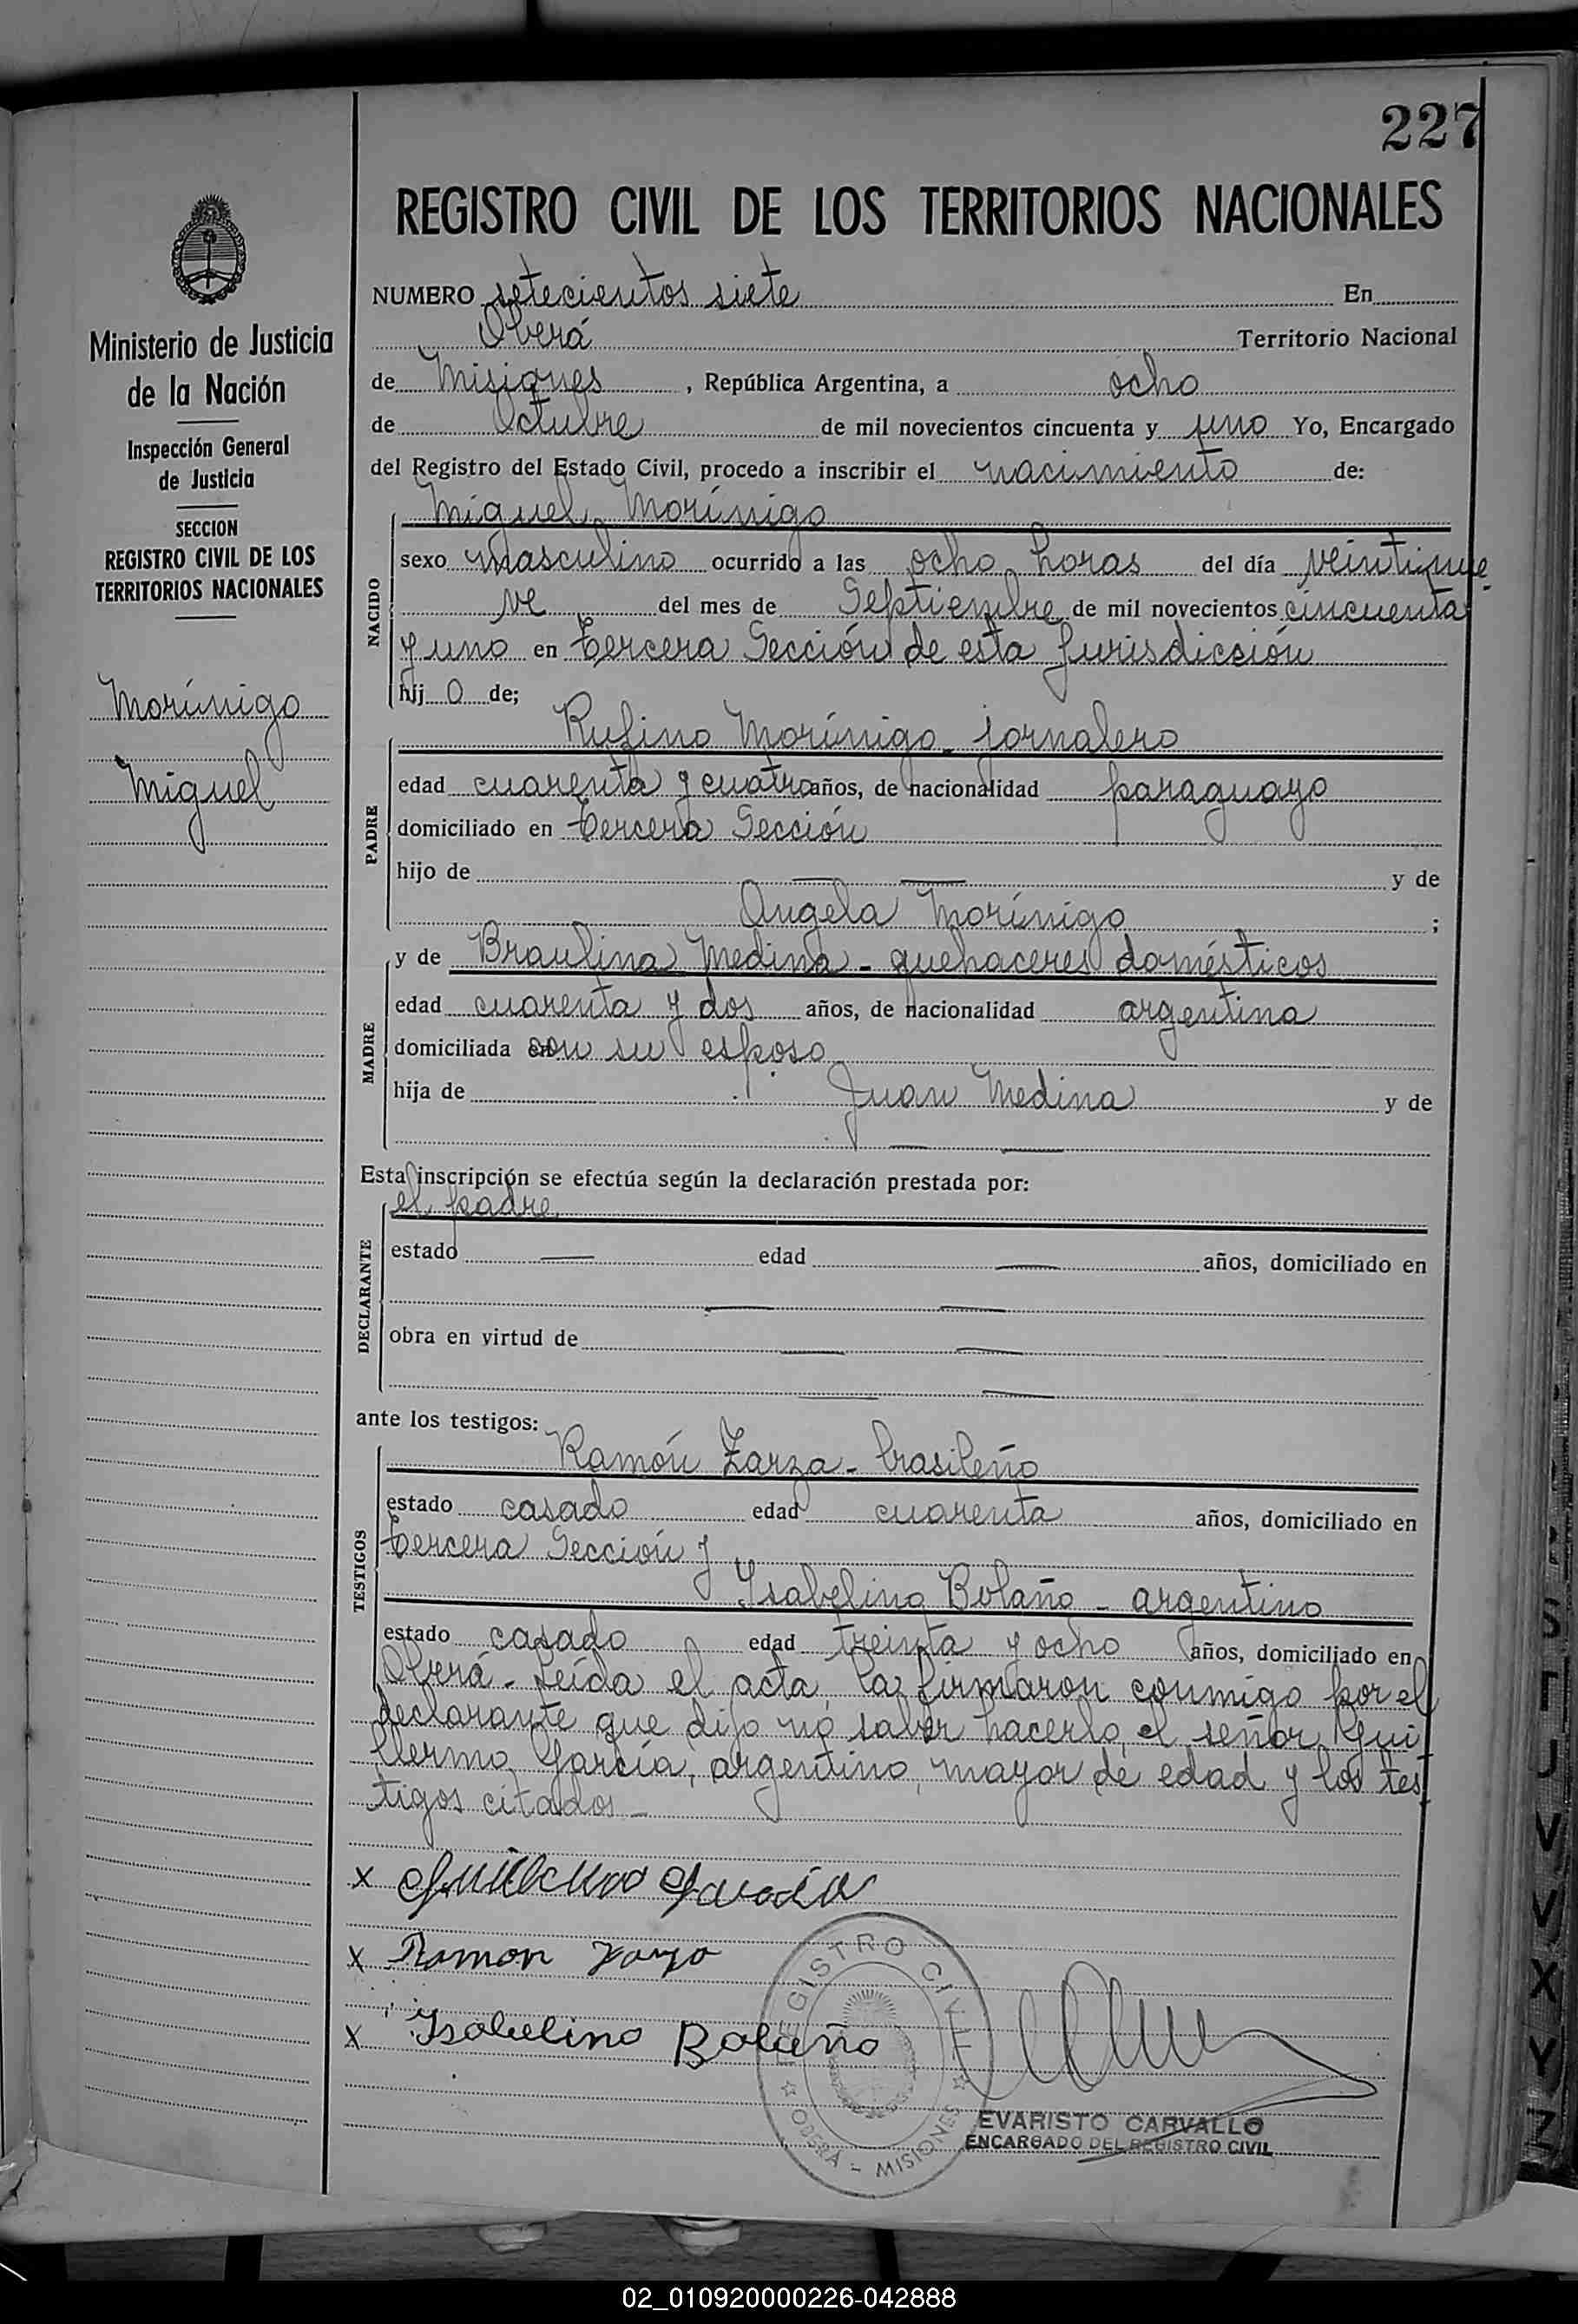 227
REGISTRO CIVIL DE LOS TERRITORIOS NACIONALES
Ministerio de Justicia
de la Nación
Inspección General
de Justicia
SECCION
REGISTRO CIVIL DE LOS
TERRITORIOS NACIONALES
Morínigo
Miguel
NUMERO setecientos siete En
Oberá Territorio Nacional
de Misiones, República Argentina, a ocho
de Octubre de mil novecientos cincuenta y uno Yo, Encargado
del Registro del Estado Civil, procedo a inscribir el nacimiento de:
Miguel Morínigo
NACIDO
sexo masculino ocurrido a las ocho horas del día veintinue-
ve del mes de Septiembre de mil novecientos cincuenta
y uno en tercera Sección de esta Jurisdicción
hij o de;
Rufino Morínigo - jornalero
PADRE
edad cuarenta y cuatro años, de nacionalidad paraguayo
domiciliado en tercera Sección
hijo de — — y de
Angela Morínigo ;
y de Braulina Medina - quehaceres domésticos
MADRE
edad cuarenta y dos años, de nacionalidad argentina
domiciliada en con su esposo
hija de Juan Medina y de
— —
Esta inscripción se efectúa según la declaración prestada por:
el padre
DECLARANTE
estado — edad — años, domiciliado en
— —
obra en virtud de — —
— —
ante los testigos:
Ramón Zarza - brasileño
TESTIGOS
estado casado edad cuarenta años, domiciliado en
tercera Sección y
Ysabelino Bolaño - argentino
estado casado edad treinta y ocho años, domiciliado en
Oberá - Leída el acta, la firmaron conmigo por el
declarante que dijo no saber hacerlo, el señor Gui
llermo García, argentino, mayor de edad y los tes-
tigos citados -
x Guillermo Garcia
x Ramon Zarza
x Ysabelino Bolaño
REGISTRO CIVIL
OBERÁ - MISIONES
EVARISTO CARVALLO
ENCARGADO DEL REGISTRO CIVIL
S
T
U
V
V
X
Y
Z
02_010920000226-042888